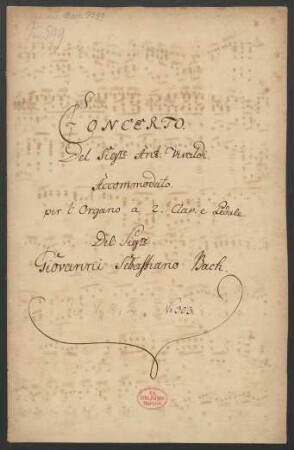 CONCERTO.
Del Sigre Ant. Vivaldi
Accommodato
per l' Organo a 2. Clav. e Pedale
Del Sigre
Giovanni Sebastiano Bach